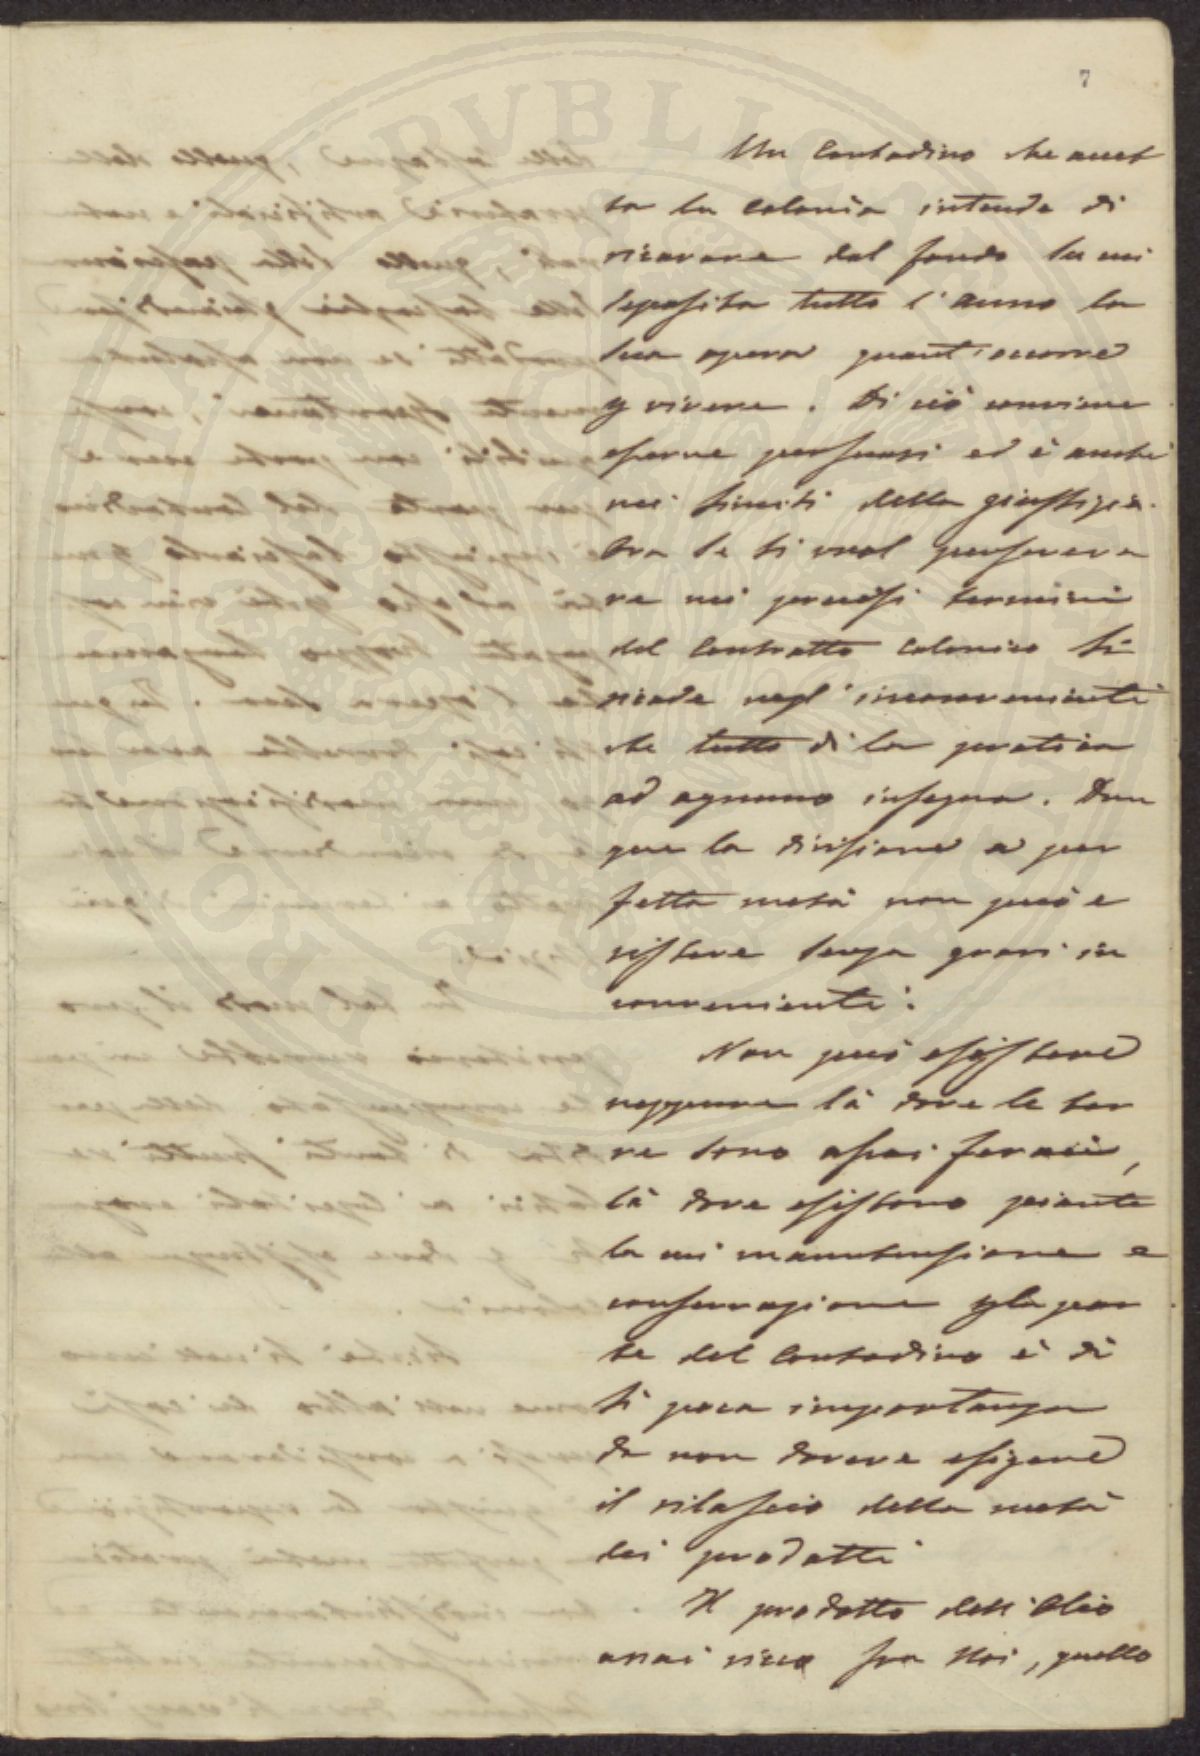 7
Un Contadino che accet
ta la Colonia intende di
ricavare dal fondo su cui
deposita tutto l'anno la
sua opera quant'occorre
p vivere. Di ciò conviene
esserne persuasi ed è anche
nei limiti della giustizia.
Ora se si vuol persevera
re nei precisi termini
del Contratto Colonico si
ricade negl'inconvenienti
che tutto dì la pratica
ad ognuno insegna. Dun
que la divisione a per
fetta metà non può e
sistere senza gravi in
convenienti.
Non può esistere
neppure là dove le ter
re sono assai feraci,
là dove esistono piante
la cui manutensione e
conservazione p la par
te del Contadino è di
sì poca importanza
da non dovere esigere
il rilascio della metà
dei prodotti
Il prodotto dell'Olio
assai ricco fra Noi, quello
PUBLICAE